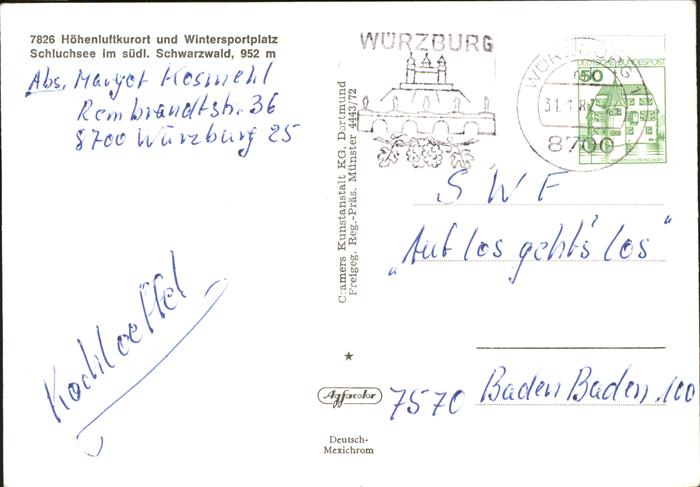 7826 Höhenluftkurort und Wintersportplatz
Schluchsee im südl. Schwarzwald, 952 m
Abs. Margot Kosmehl
Rembrandtstr. 36
8700 Würzburg 25
Kochloeffel
Cramers Kunstanstalt KG, Dortmund
Freigeg. Reg.-Präs. Münster 4443/72
Agfacolor
Deutsch-
Mexichrom
WÜRZBURG
WÜRZBURG 1
8700
DEUTSCHE BUNDESPOST
50
SWF
„Auf los geht's los"
7570 Baden Baden .100